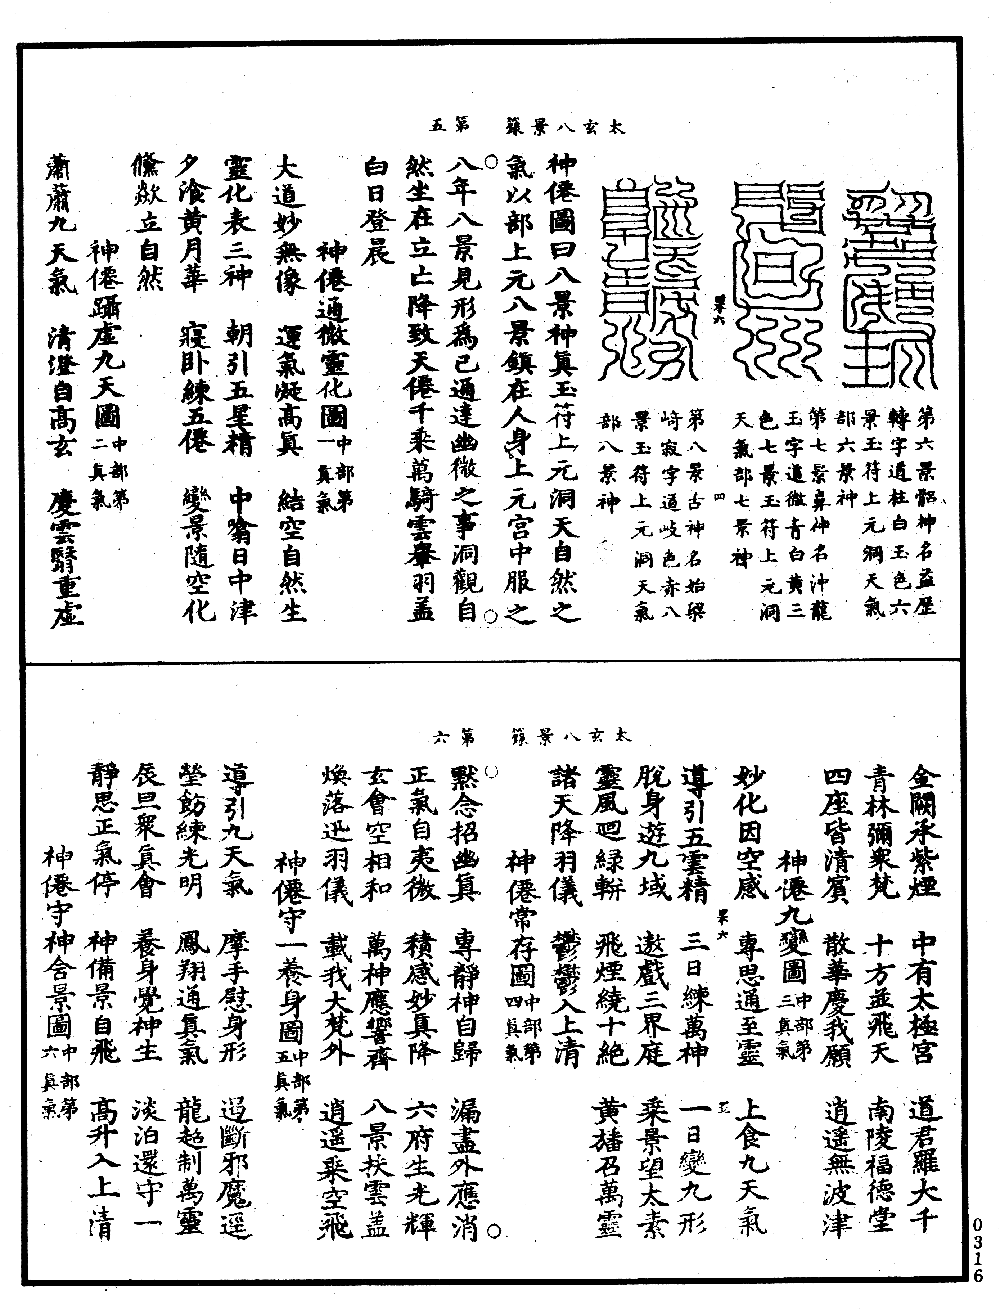 太玄八景籙　第五
第六景骼神名益歷
轉字道柱白玉色六
景玉符上元洞天氣
部六景神
第七景鼻神名沖龍
玉字道微青白黃三
色七景玉符上元洞
天氣部七景神
四
第八景舌神名始梁
崎寂字道岐色赤八
景玉符上元洞天氣
部八景神
神僊圖曰八景神真玉符上元洞天自然之
氣以部上元八景鎮在人身上元宮中服之
八年八景見形為已通達幽微之事洞觀自
然坐在立亡降致天僊千乘萬騎雲轝羽蓋
白日登晨
神僊通微靈化圖中部第一真氣
大道妙無像　運氣凝高真　結空自然生
靈化表三神　朝引五星精　中噏日中津
夕飡黃月華　寢卧練五僊　變景隨空化
儵歘立自然
神僊躡虛九天圖中部第二真氣
蕭蕭九天氣　清澄自高玄　慶雲翳重虛
太玄八景籙　第六
金闕承紫煙　中有太極宮　道君羅大千
青林彌衆梵　十方並飛天　南陵福德堂
四座皆清賓　散華慶我願　逍遙無波津
神僊九變圖中部第三真氣
妙化因空感　專思通至靈　上食九天氣
五
導引五雲精　三日練萬神　一日變九形
脫身遊九域　遨戲三界庭　乘景望太素
靈風迴綠軿　飛煙繞十絕　黃旛召萬靈
諸天降羽儀　鬱鬱入上清
神僊常存圖中部第四真氣
默念招幽真　專靜神自歸　漏盡外應消
正氣自夷微　積感妙真降　六府生光輝
玄會空相和　萬神應響齊　八景扶雲蓋
煥落迅羽儀　載我大梵外　逍遥乘空飛
神僊守一養身圖中部第五真氣
導引九天氣　摩手慰身形　迢斷邪魔逕
瑩飭練光明　鳳翔通真氣　龍超制萬靈
辰旦衆真會　養身覺神生　淡泊還守一
靜思正氣停　神備景自飛　高升入上清
神僊守神含景圖中部第六真氣
0316